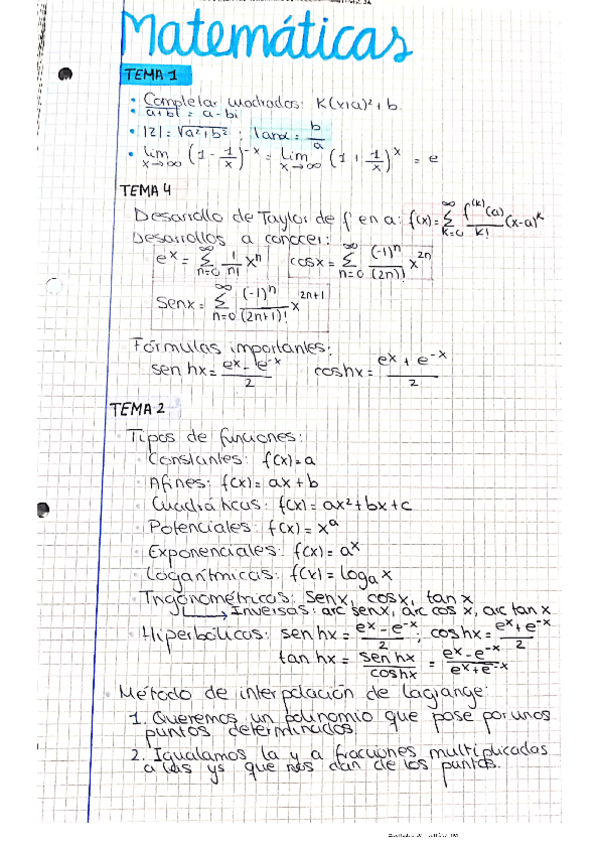 Matemáticas
TEMA 1
• Completar cuadrados: K(x+a)²+b
• a+bi = a-bi
• |z| = √a²+b² ; tanα = b/a
• lim x→∞ (1 - 1/x)^-x = lim x→∞ (1 + 1/x)^x = e
TEMA 4
Desarrollo de Taylor de f en a: f(x) = ∑ k=0 ∞ f^(k)(a)/k! (x-a)^k
Desarrollos a conocer:
e^x = ∑ n=0 ∞ 1/n! x^n cosx = ∑ n=0 ∞ (-1)^n/(2n)! x^2n
senx = ∑ n=0 ∞ (-1)^n/(2n+1)! x^2n+1
Fórmulas importantes:
sen hx = e^x - e^-x/2 coshx = e^x + e^-x/2
TEMA 2
• Tipos de funciones:
• Constantes: f(x) = a
• Afines: f(x) = ax + b
• Cuadráticas: f(x) = ax²+bx+c
• Potenciales: f(x) = x^a
• Exponenciales: f(x) = a^x
• Logarítmicas: f(x) = log_a x
• Trigonométricas: senx, cosx, tan x
→ Inversas: arc senx, arc cos x, arc tan x
• Hiperbólicas: sen hx = e^x - e^-x/2 ; cos hx = e^x + e^-x/2
tan hx = sen hx/coshx = e^x - e^-x/e^x + e^-x
• Método de interpolación de Lagrange:
1. Queremos un polinomio que pase por unos
puntos determinados
2. Igualamos la y a fracciones multiplicadas
a las ys que nos dan de los puntos.